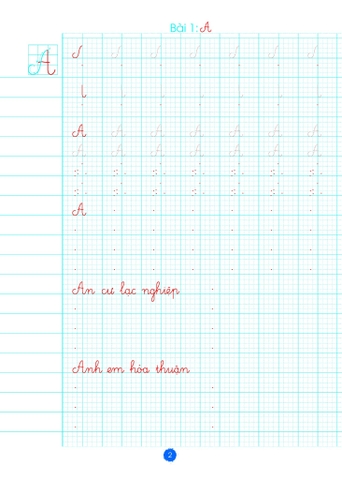 Bài 1: A
A
A A A A A A A
A A A A A A A
A
An cư lạc nghiệp
Anh em hòa thuận
2